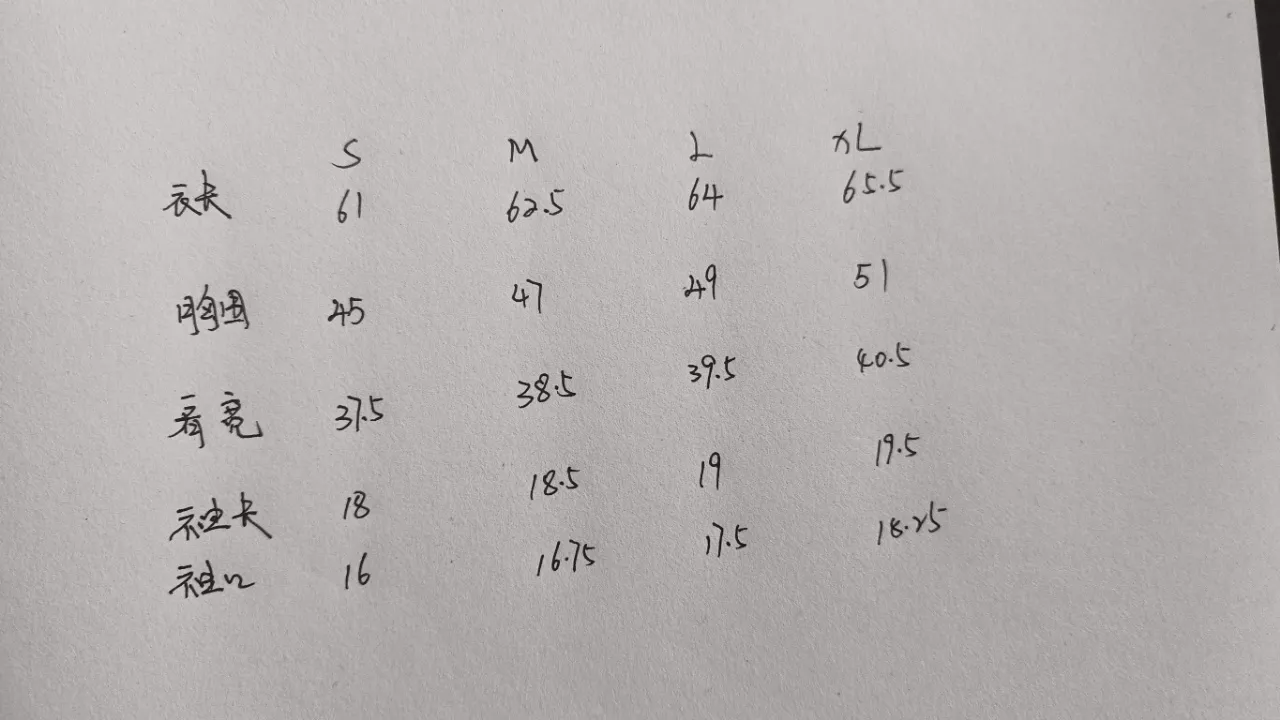 S M L XL
衣长 61 62.5 64 65.5
胸围 45 47 49 51
肩宽 37.5 38.5 39.5 40.5
袖长 18 18.5 19 19.5
袖口 16 16.75 17.5 18.25